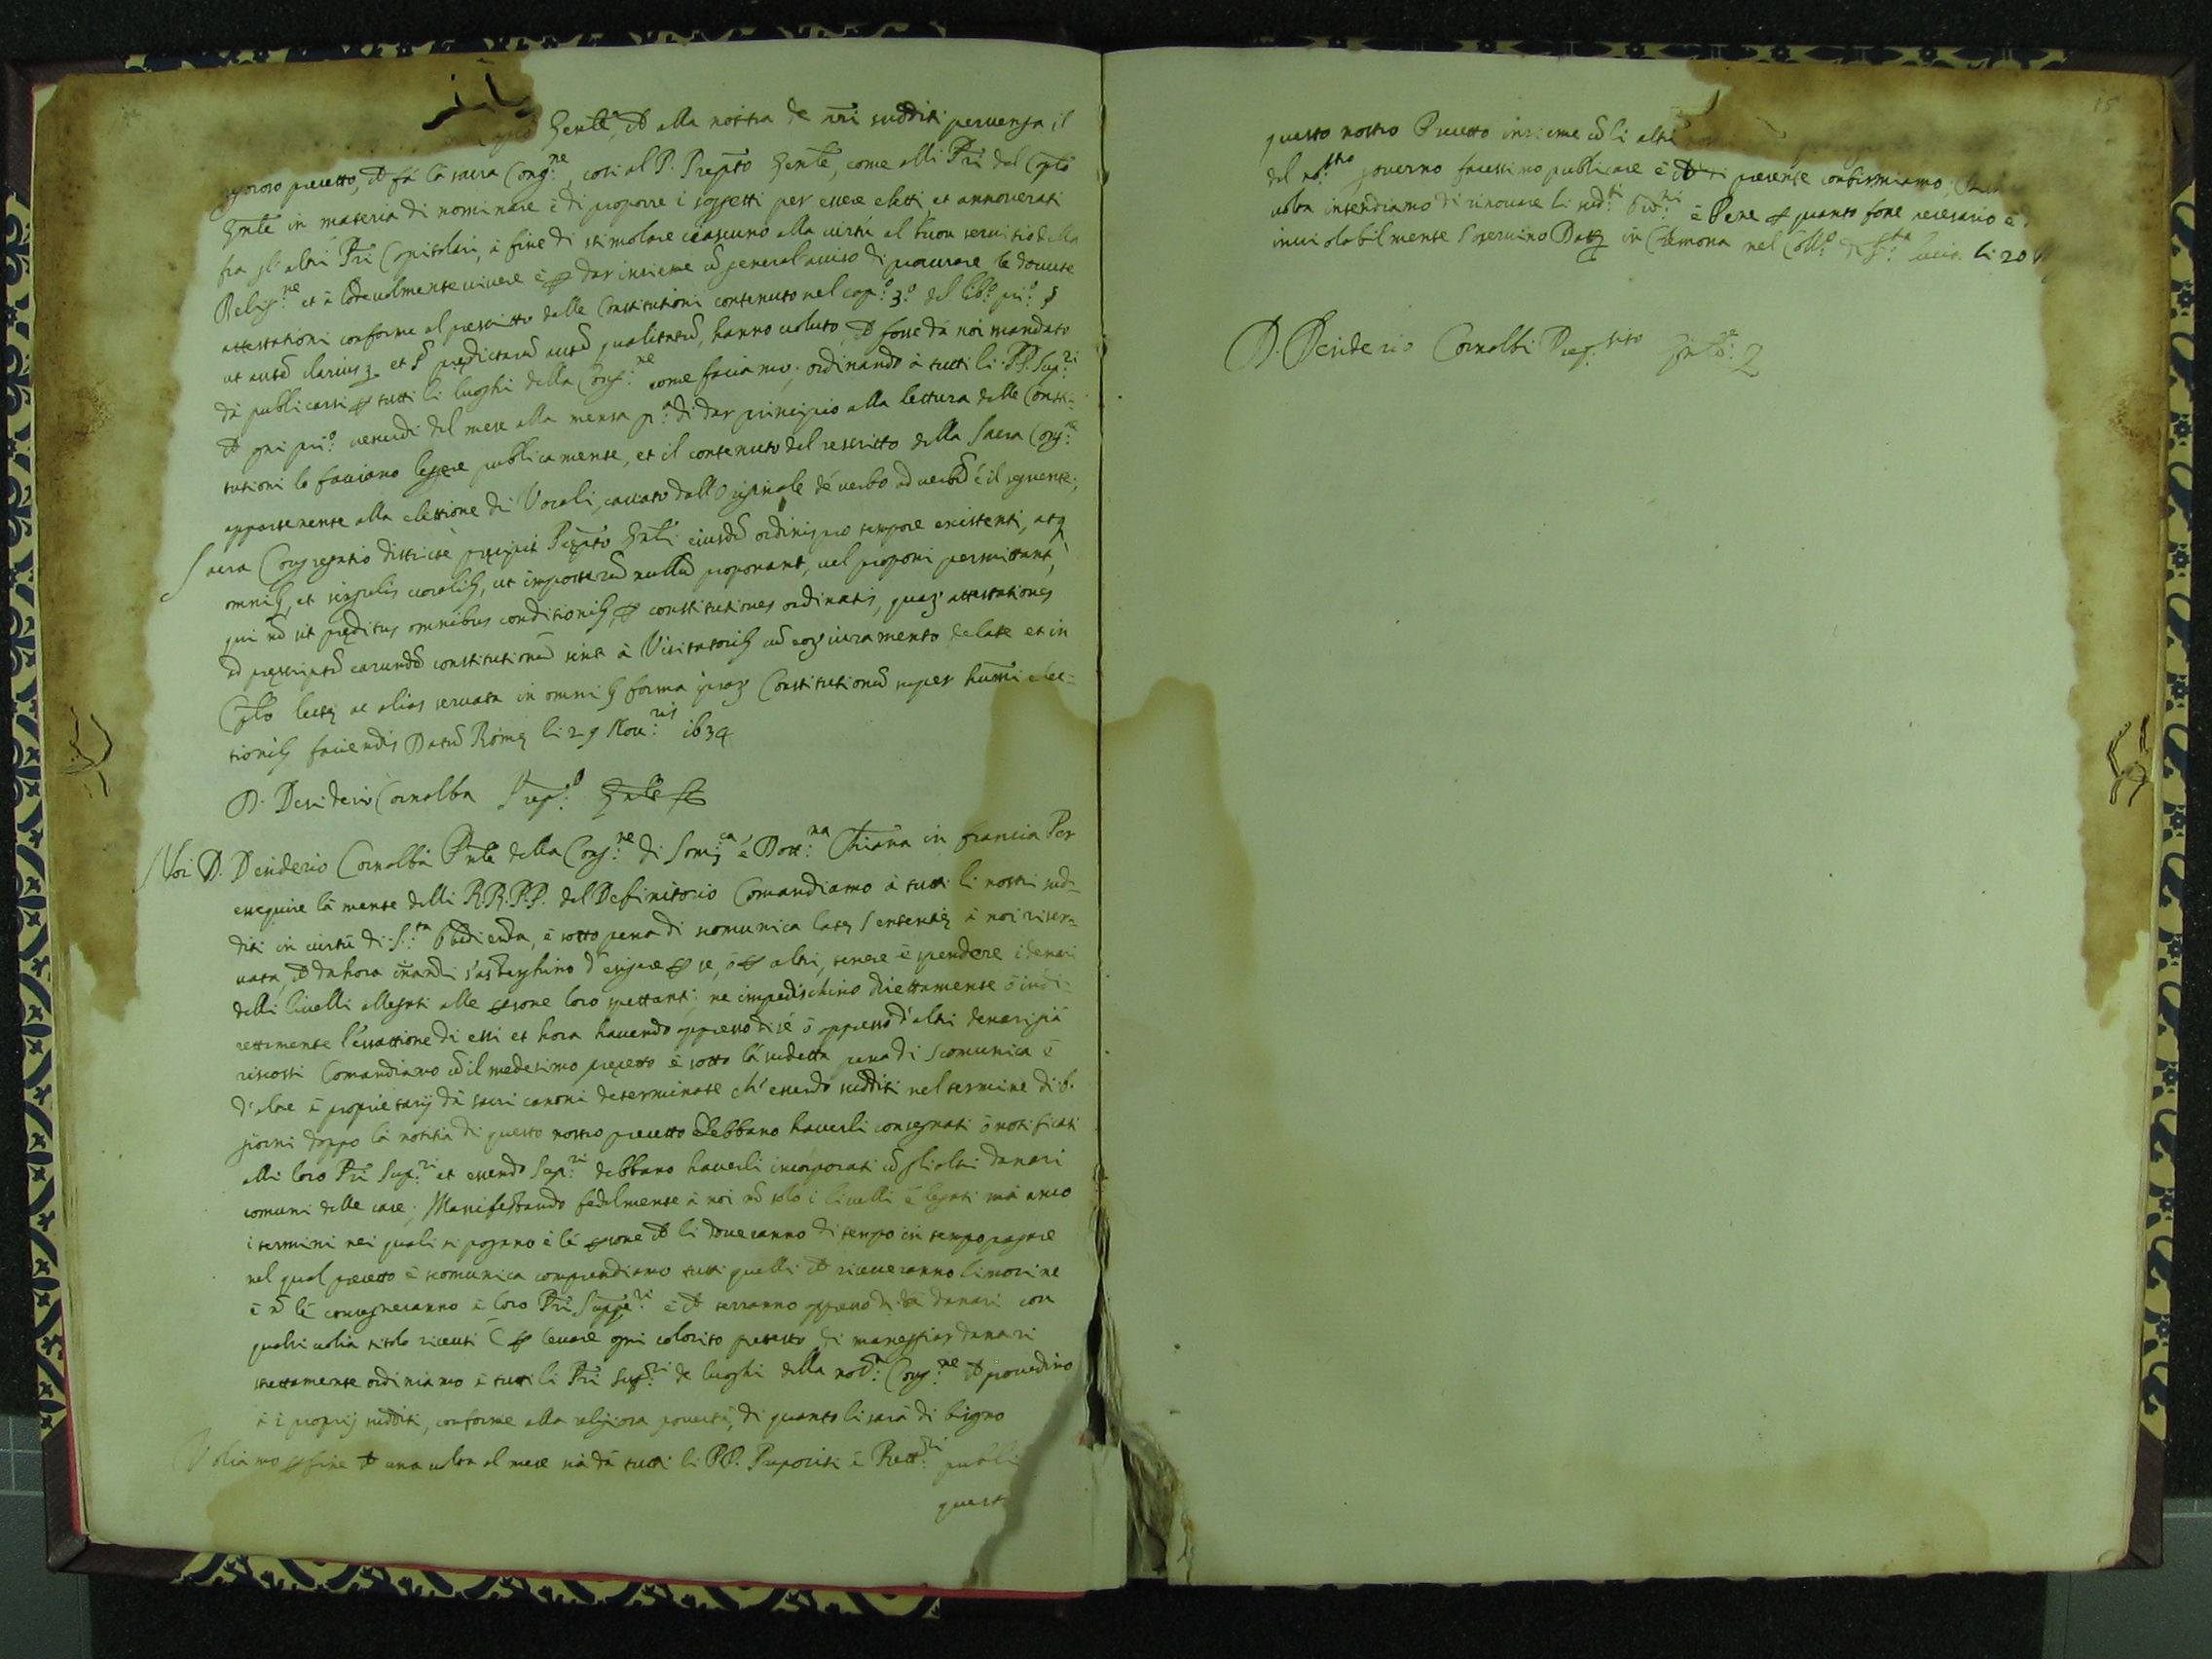 Gen̄le, et alla notitia de nr̄i sudditi pervenga, il
rigoroso precetto, ch̄ fà la sacra Cong.ne, cosi al P. Prep̄to Gen̄le, come alli Pr̄i del Cap̄lo
Gn̄le in materia di nominare è di proporre i soggetti per essere eletti et annoverati
fra gl'altri Pr̄i Capitolari, à fine di stimolare ciascuno alla virtù al buon servitio della
Relig.ne et à lodevolmente vivere è p dar insieme cō general'aviso di procurare le dovute
attestationi conforme al prescritto delle Constitutioni contenuto nel cap.o 3.o del lib.o pri.o §
ut autē clarius 3. et § predictarū autē qualitatū, hanno voluto, ch̄ fosse dà noi mandato
dà publicarsi p tutti li luoghi della Cong.ne come faciamo; ordinando à tutti li PP. Sup.ri
ch̄ ogni pri.o venerdi del mese alla mensa p.a di dar principio alla lettura delle Consti-
tutioni lo faciano legere publicamente, et il contenuto del rescritto della Sacra Cong.ne
appartenente alla elettione di Vocali, cavato dall'Originale de verbo ad verbū è il seguente;
Sacra Congregatio districtè precipit Prep̄to Gn̄li eiusdē ordinis pro tempore existenti, atq
omnib, et singulis vocalib, ut imposterū nullū proponant, vel proponi permittant,
qui nō sit preditus omnibus conditionib, p constitutiones ordinatis, quaz attestationes
ad prescriptū earundē constitutionū sint à Visitatorib cū eoz iuramento delate et in
Cap̄lo lecte ac alias servata in omnib forma ipsaz Constitutionū super hum̄oi elec-
tionib faciendis Datū Rome li 29 Nov.ris 1634
D. Desiderio Cornalba Prep.o Gn̄le
Noi D. Desiderio Cornalba Pn̄le della Cong.ne di Som.ca è Dott.na Chr̄iana in francia Per
esseguire la mente delli RR.PP. del Definitorio Comandiamo à tutti li nostri sud-
diti in virtù di S.ta Obedienza, è sotto pena di scomunica late Sententie à noi riser-
vata, ch̄ da hora inanzi s'astenghino d'esigere p se, ò p altri, tenere è spendere i denari
delli livelli assegnati alle persone loro spettanti; ne impedischino direttamente ò indi-
rettamente l'essattione di essi et hora havendo appresso di sé ò appresso d'altri denari già
riscossi Comandiamo cō il medesimo precetto è sotto la sudetta pena di scomunica è
d'altre à proprietarij da sacri canoni determinate ch'essendo sudditi nel termine di 6.
giorni doppo la notitia di questo nostro precetto debbano haverli consegnati ò notificati
alli loro Pr̄i Sup.ri et essendo Sup.ri debbano haverli incorporati cō gli altri danari
comuni delle case; Manifestando fedelmente à noi nō solo i livelli è legati mà anco
i termini nei quali si pagano è le persone ch̄ li doveranno di tempo in tempo pagare
nel qual precetto è scomunica comprendiamo tutti quelli ch̄ riceveranno limosine
è nō le consegneranno à loro Pr̄i Supe.ri è ch̄ terranno appresso di se danari con
qualsivolia titolo ricevuti E p levare ogni colorito pretesto di maneggiar danari
strettamente ordiniamo à tutti li Pr̄i Sup.ri de luoghi della nost.a Cong.ne ch̄ provedino
à i proprij sudditi, conforme alla religiosa povertà, di quanto li sarà di bisogno
Voliamo p fine ch̄ una volta al mese sia dà tutti li PP. Prepositi è Rett.ri publi
quest
15
questo nostro Precetto insieme cō li altri
del nō.stro governo facessimo publicare è ch̄ di presente confirmiamo;
volta intendiamo di rinovare li sud.ti Ord.ni è Pene p quanto fosse necessario è
inviolabilmente s'osservino Date in Cremona nel Coll.o di S.ta Lucia li 20
D. Desiderio Cornalbi Prep.sito Gn̄le